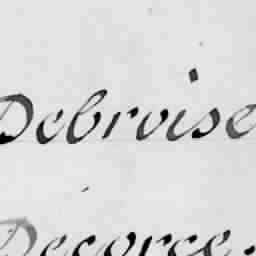 Debroise
Decorce.